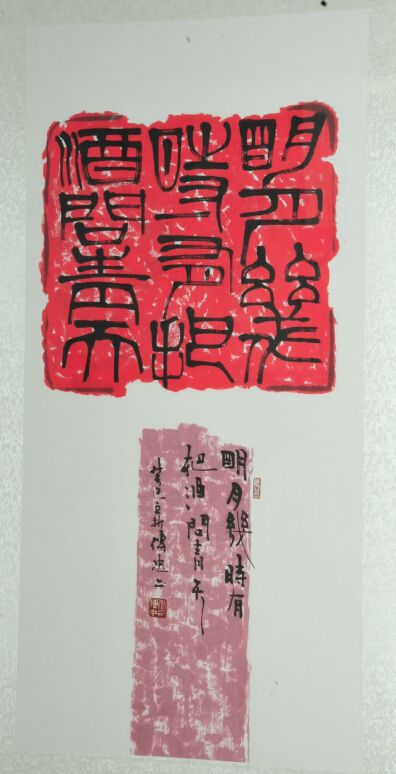 明月幾
時有把
酒問青天
明月幾時有
把酒問青天
癸巳